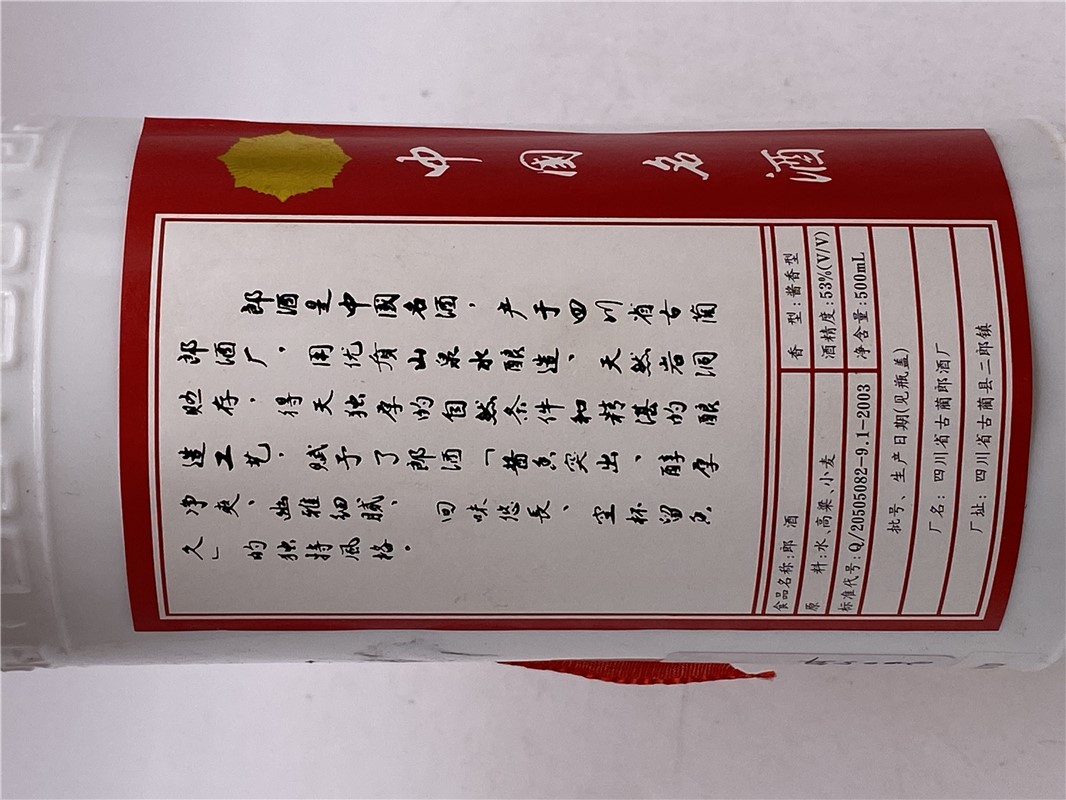 中国名酒
郎酒是中國名酒，产于四川省古蔺
郎酒厂，用优质山泉水酿造、天然岩洞
贮存，得天独厚的自然条件和精湛的酿
造工艺，赋予了郎酒「酱香突出、醇厚
净爽、幽雅细腻、回味悠长、空杯留香
久」的独特风格。
食品名称:郎 酒
香 型:酱香型
原 料:水、高粱、小麦
酒精度:53%(V/V)
标准代号:Q/20505082-9.1-2003
净含量:500mL
批号、生产日期(见瓶盖)
厂名:四川省古蔺郎酒厂
厂址:四川省古蔺县二郎镇